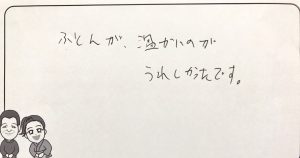 ふとんが、温かいのが
うれしかったです。